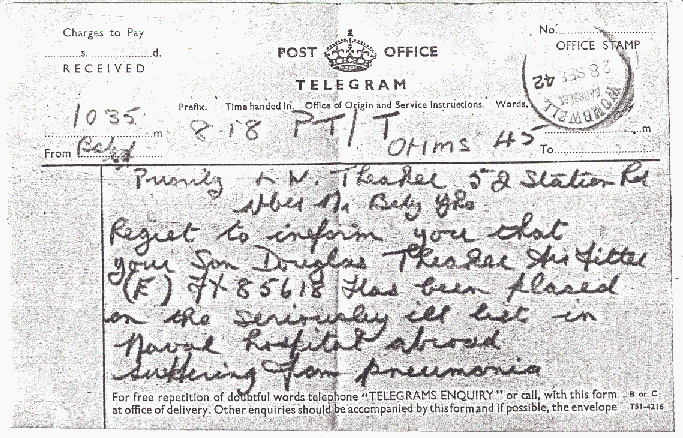 Charges to Pay
s. d.
RECEIVED
POST OFFICE
TELEGRAM
No.
OFFICE STAMP
28 SE 42
Prefix. Time handed in. Office of Origin and Service Instructions. Words.
1035
m
8.18 PT/T
OHMS 45
m
From
To
Priority Theaker 52 Station Rd
Regret to inform you that
your Son Douglas Theaker Air Fitter
(E) FX 85618 Has been placed
on the seriously ill list in
Naval hospital abroad
suffering from pneumonia
For free repetition of doubtful words telephone "TELEGRAMS ENQUIRY" or call, with this form
at office of delivery. Other enquiries should be accompanied by this form and if possible, the envelope
B or C
T51-4216